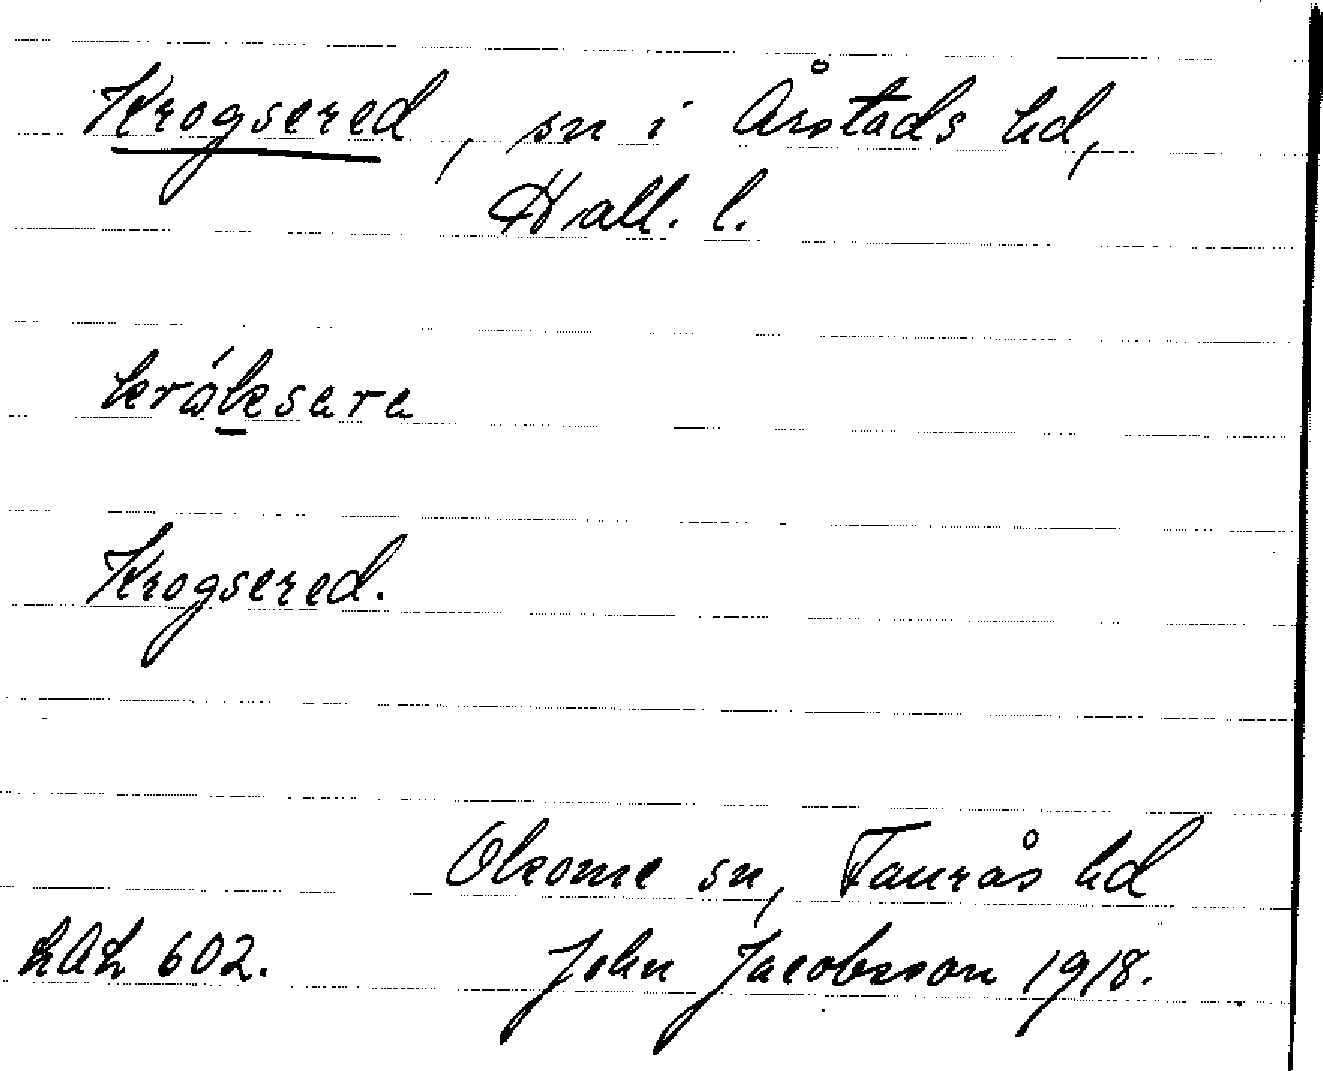 Krogsered, sn i Årstads hd,
Hall. l.
kráksara
Krogsered.
Okome sn, Faurås hd
LAL 602. John Jacobsson 1918.